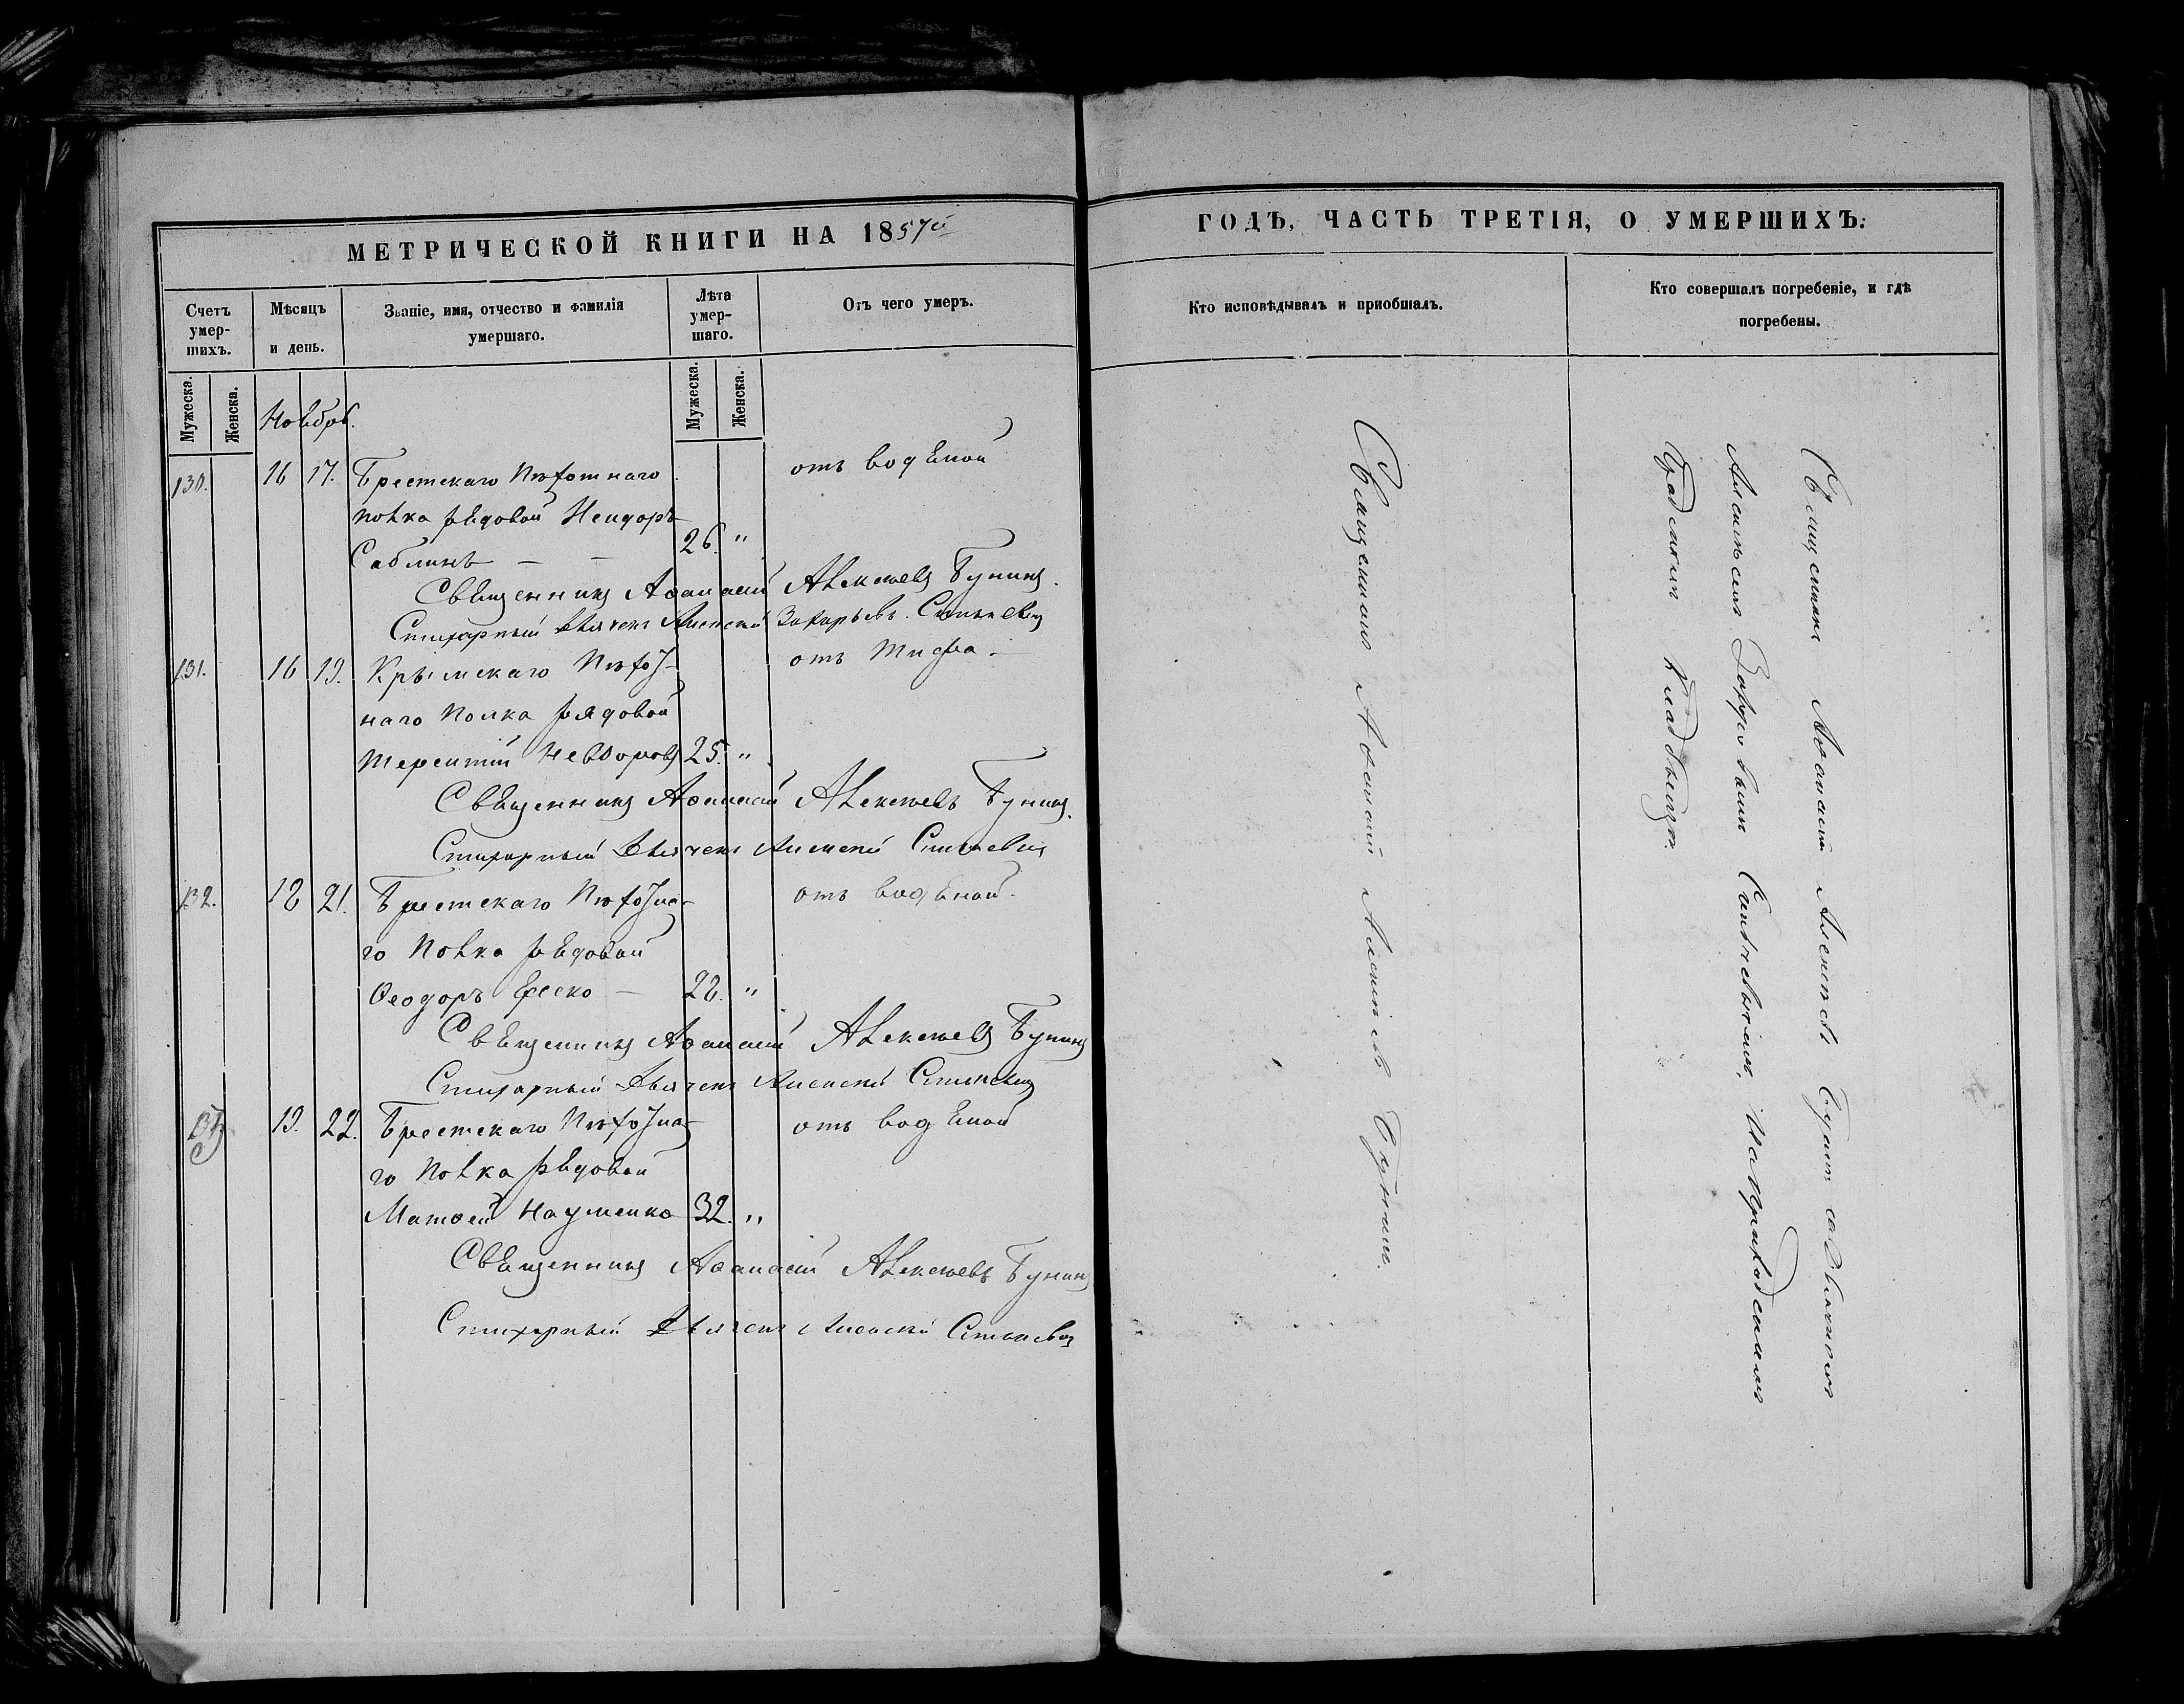 МЕТРИЧЕСКОЙ КНИГИ НА 1857й
Счетъ умер-шихъ.
Мѣсяцъ и день.
Званіе, имя, отчество и фамилія умершаго.
Лѣта умер-шаго.
Отъ чего умеръ.
Мужеска.
Женска.
Ноябрь.
Мужеска.
Женска.
130. 16 17. Брестскаго Пѣхотнаго отъ водяной
полка рядовой
Саблинъ — — 26. "
Священникъ Аѳанасій Алексѣевъ Бунинъ.
Стихарный дьячекъ Алексѣй Захарьевъ
131. 16 19. Крымскаго Пѣхот- отъ тифа —
наго полка рядовой
Терентій 25. "
Священникъ Аѳанасій Алексѣевъ Бунинъ.
Стихарный дьячекъ Алексѣй
132. 18 21. Брестскаго Пѣхотна- отъ водяной.
го полка рядовой
Ѳеодоръ — 28. "
Священникъ Аѳанасій Алексѣевъ Бунинъ
Стихарный дьячекъ Алексѣй
19. 22. Брестскаго Пѣхотна- отъ водяной
го полка рядовой
Матѳей Науменко 32. "
Священникъ Аѳанасій Алексѣевъ Бунинъ
Стихарный дьячекъ Алексѣй
ГОДЪ, ЧАСТЬ ТРЕТІЯ, О УМЕРШИХЪ:
Кто исповѣдывалъ и пріобщалъ.
Кто совершалъ погребеніе, и гдѣ погребены.
Священникъ Аѳанасій Алексѣевъ Бунинъ.
Священникъ Аѳанасій Алексѣевъ Бунинъ съ дьячкомъ
Алексѣемъ На приходскомъ
Градскомъ Кладбищѣ.